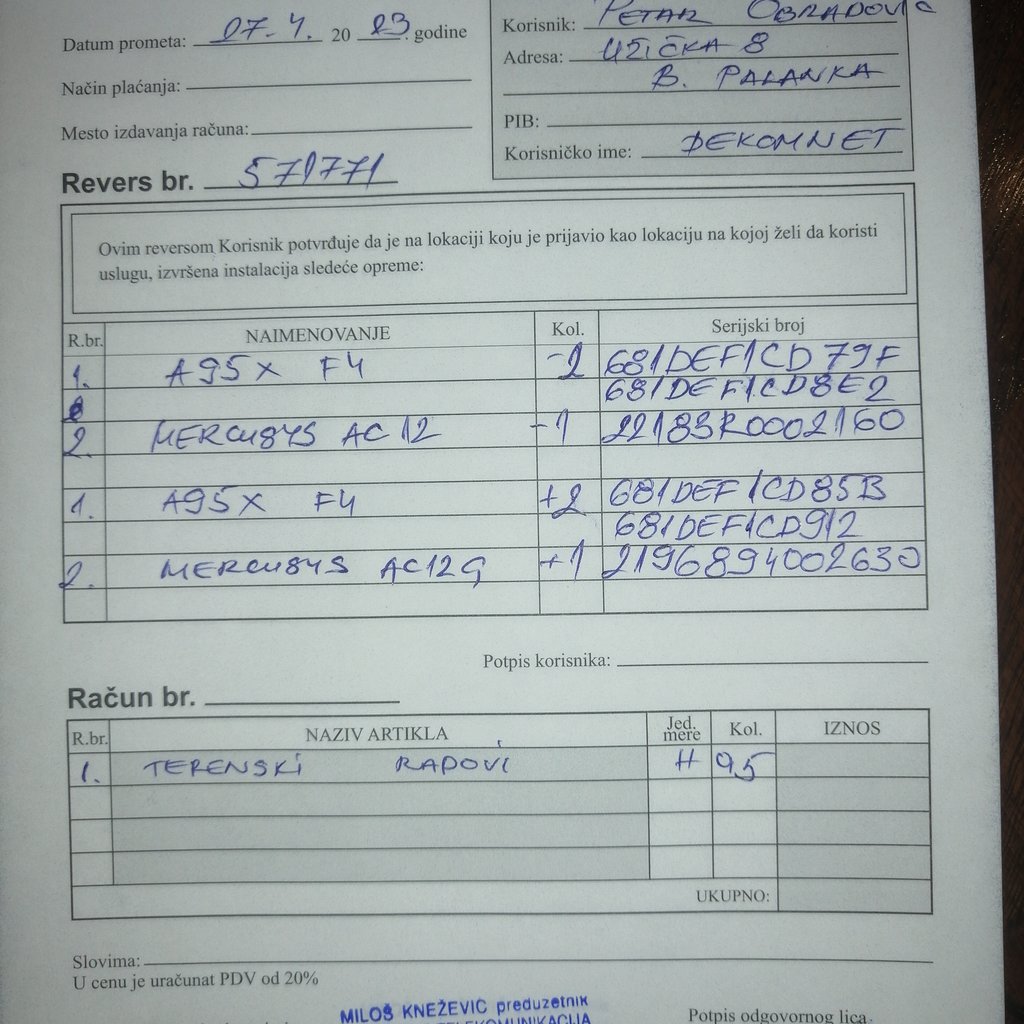 Datum prometa: 27.4. 20 23 godine
Način plaćanja:
Mesto izdavanja računa:
Korisnik: PETAR OBRADOVIĆ
Adresa: UŽIČKA 8
B. PALANKA
PIB:
Korisničko ime: DEKOMNET
Revers br. 571771
Ovim reversom Korisnik potvrđuje da je na lokaciji koju je prijavio kao lokaciju na kojoj želi da koristi
uslugu, izvršena instalacija sledeće opreme:
R.br. NAIMENOVANJE Kol. Serijski broj
1. A95X F4 -2 681DEF1CD79F
681DEF1CD8E2
2. MERCUSYS AC12 -1 22183R0002160
1. A95X F4 +2 681DEF1CD85B
681DEF1CD912
2. MERCUSYS AC12G +1 2196894002630
Potpis korisnika:
Račun br.
R.br. NAZIV ARTIKLA Jed. mere Kol. IZNOS
1. TERENSKI RADOVI H 0,5
UKUPNO:
Slovima:
U cenu je uračunat PDV od 20%
MILOŠ KNEŽEVIĆ preduzetnik
TELEKOMUNIKACIJA
Potpis odgovornog lica